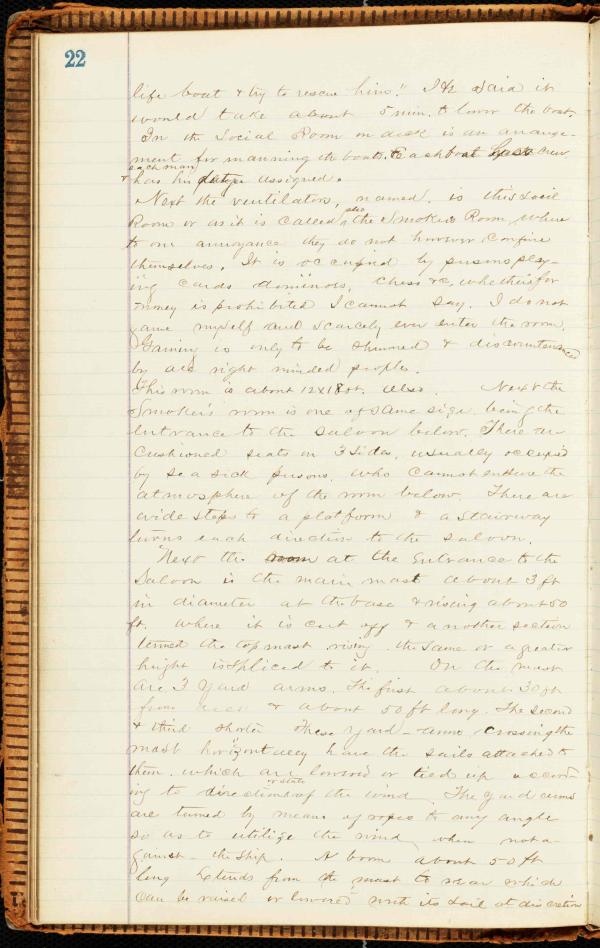 22
life boat & try to rescue him." It is said it
would take about 5 min. to lower the boat.
In the Social Room on deck is an arrange-
ment for manning the boats. Each boat has crew
each man
& has his assigned.
Next the ventilator, named, is this social
also
Room or as it is called, the Smokers Room, where
to our annoyance they do not however confine
themselves. It is occupied by persons play-
ing cards dominoes, chess &c, whether for
money is prohibited I cannot say. I do not
game myself and scarcely ever enter the room.
Gaming is only to be shunned & discountenanced
by all right minded people.
This room is about 12x18 ft. Also. Next the
Smoker's room is one of same size being the
entrance to the saloon below. There are
Cushioned seats on 3 sides, usually occupied
by sea sick persons, who cannot endure the
atmosphere of the room below. There are
wide steps to a platform & a stairway
turns each direction to the saloon.
Next the room at the entrance to the
Saloon is the main mast about 3 ft
in diameter at the base & rising about 50
ft. where it is cut off & another section
termed the top mast rising the same or a greater
height is spliced to it. On the mast
are 3 Yard arms. The first about 30 ft
from & about 50 ft long. The second
& third shorter These yard-arms crossing the
mast horizontally have the sails attached to
them. which are lowered or tied up accord-
or state
ing to direction of the wind. The yard arms
are turned by means of ropes to any angle
so as to utilize the wind, when not a-
gainst the ship. A boom about 50 ft
long extends from the mast to rear which
can be raised or lowered with its sail at discretion